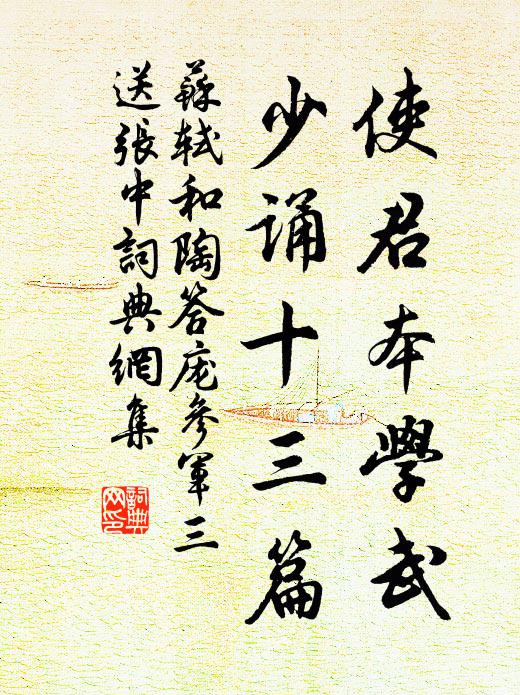 使君本學武
少誦十三篇
蘇軾和陶答庞參軍三
送張中詞典網集
詞典
网印